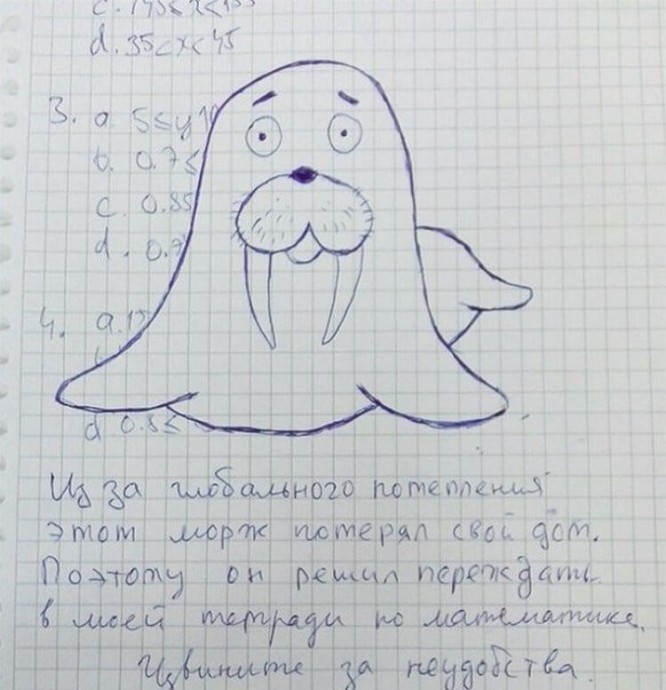 c. 145≤x<155
d. 35<x<45
3. a 5≤y
b. 0.7≤
c. 0.85
d. 0.7
4. a.
d 0.8≤
Из за глобального потепления
этот морж потерял свой дом.
Поэтому он решил переждать
в моей тетради по математике.
Извините за неудобства.